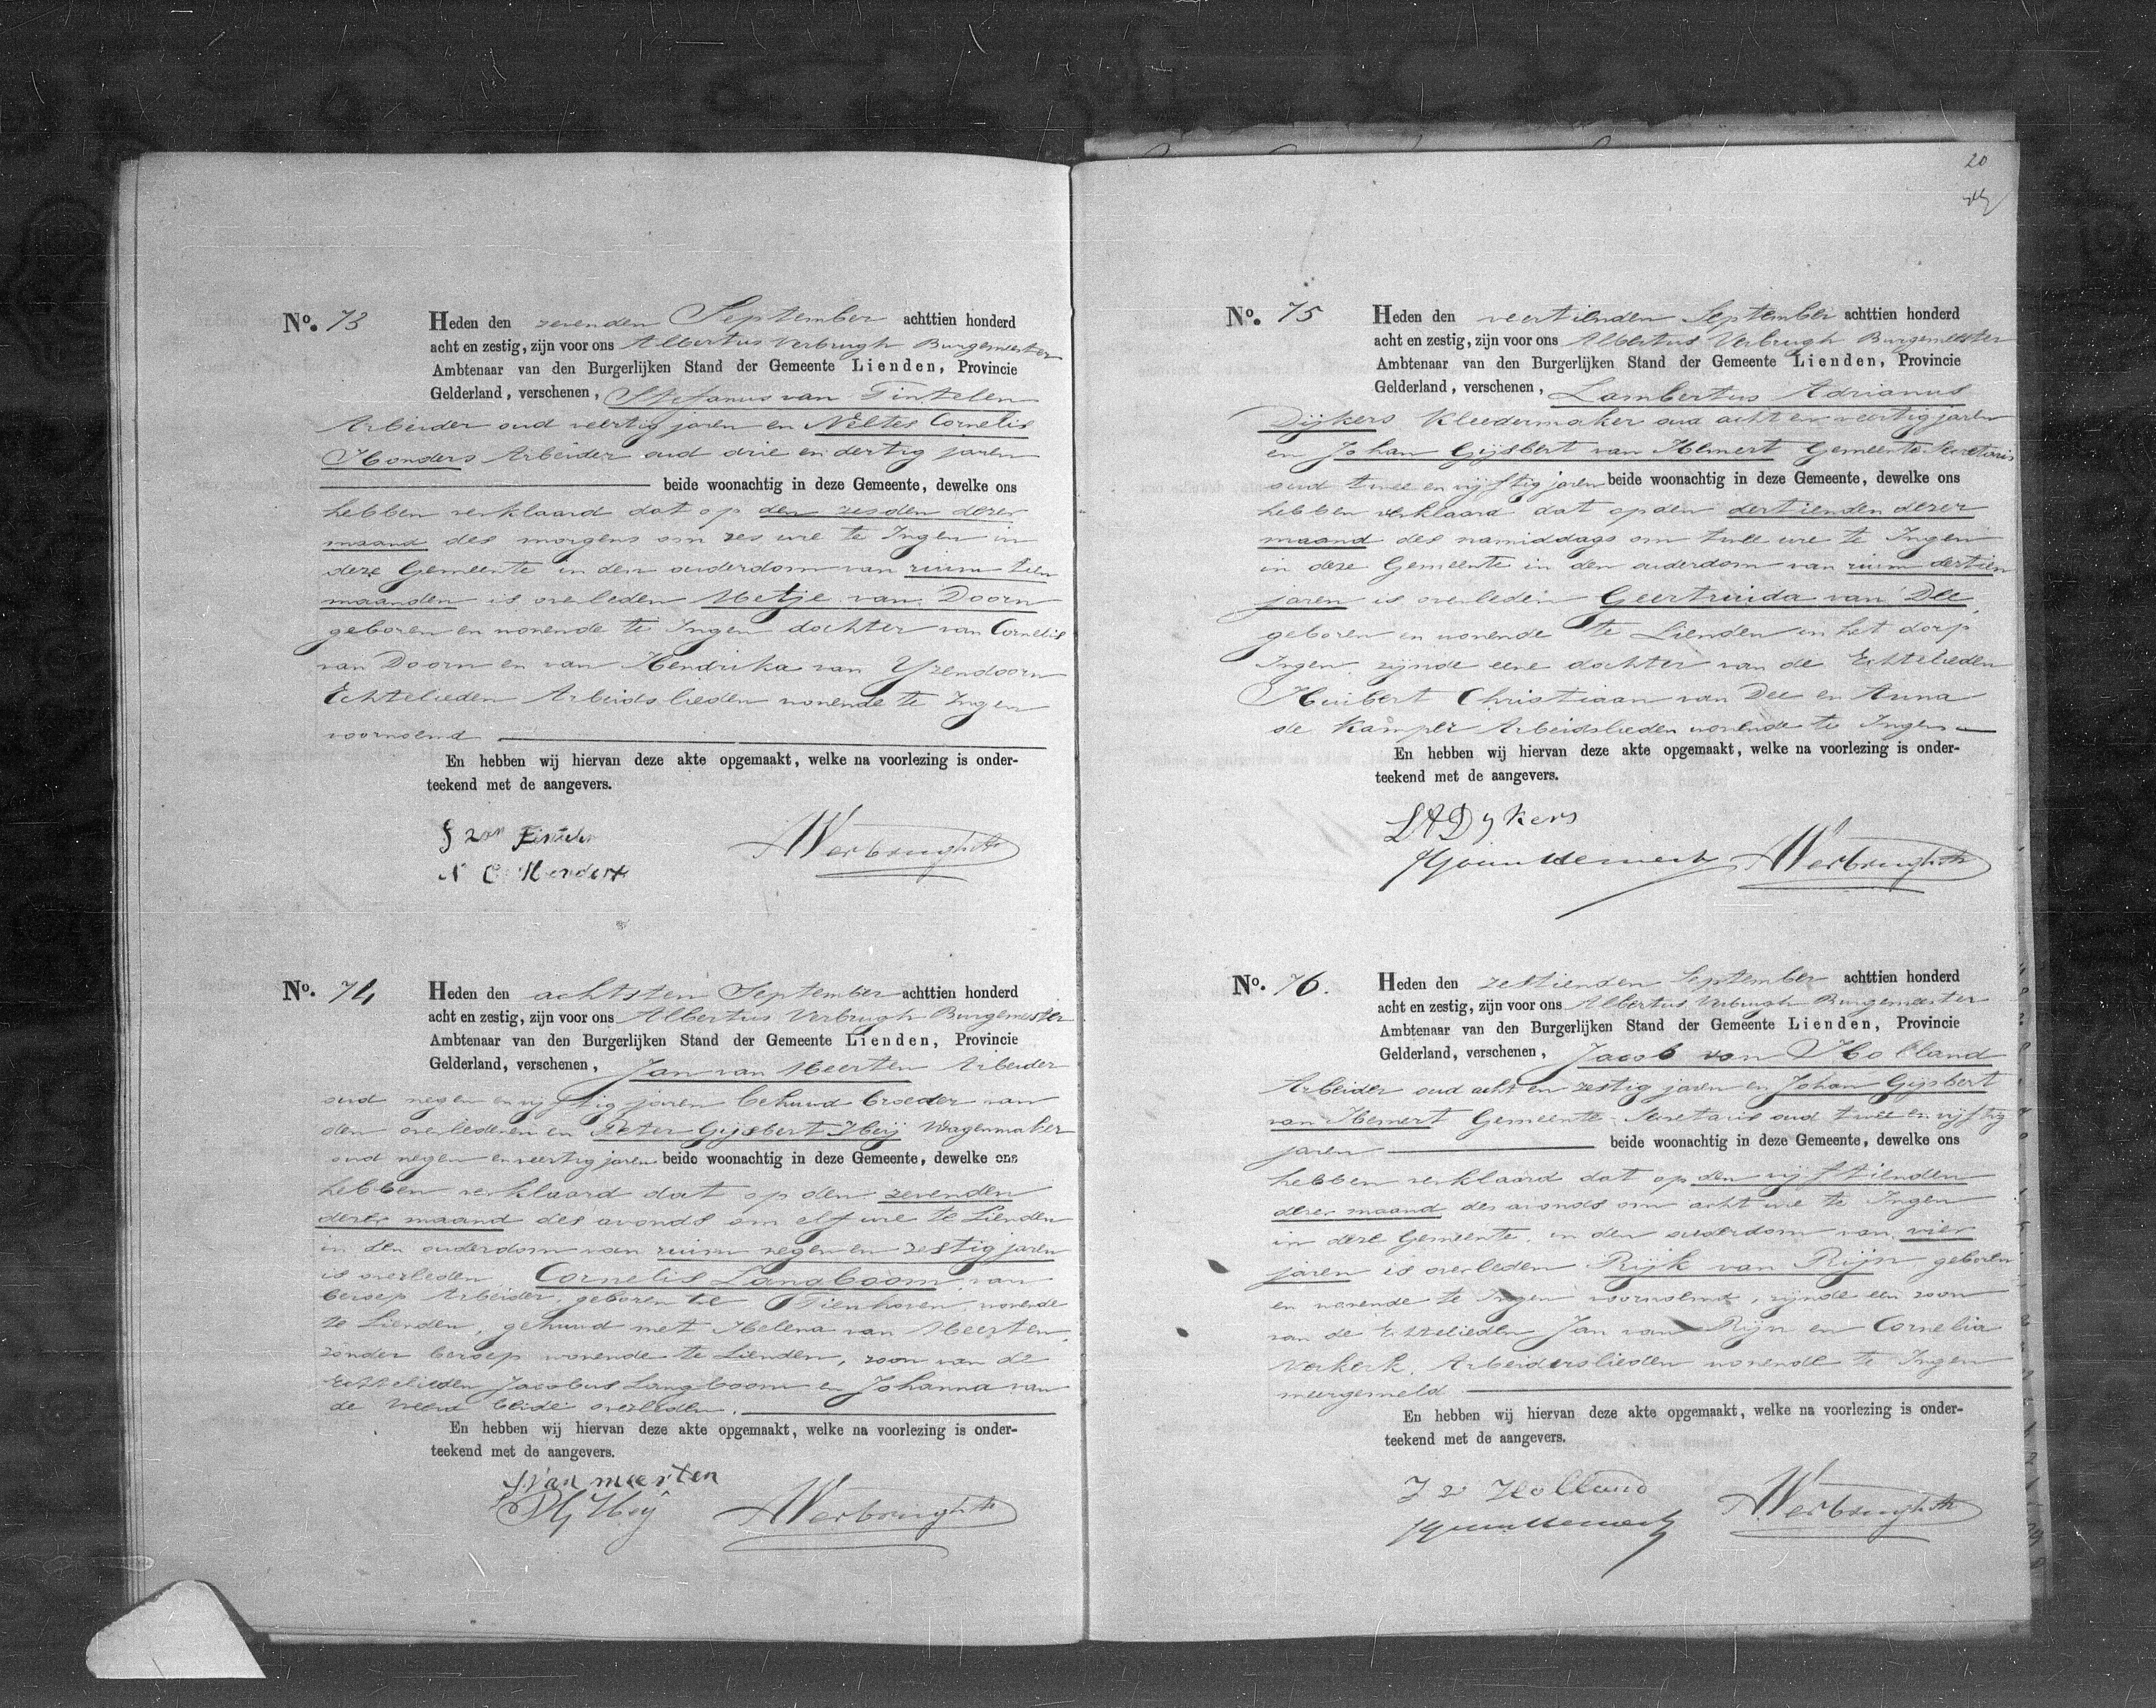 No. 73
Heden den zevenden September achttien honderd
acht en zestig, zijn voor ons Albertus Verbrugh Burgemeester
Ambtenaar van den Burgerlijken Stand der Gemeente Lienden, Provincie
Gelderland, verschenen, Stefanus van Tintelen
Arbeider oud veertig jaren en Neltes Cornelis
Honders Arbeider oud drie en dertig jaren
beide woonachtig in deze Gemeente, dewelke ons
hebben verklaard dat op den zesden dezer
maand des morgens om zes ure te Ingen in
deze Gemeente in den ouderdom van ruim tien
maanden is overleden Metje van Doorn
geboren en wonende te Ingen dochter van Cornelis
van Doorn en van Hendrika van Yzendoorn
Echtelieden Arbeidslieden wonende te Ingen
voornoemd
En hebben wij hiervan deze akte opgemaakt, welke na voorlezing is onder-
teekend met de aangevers.
S van
N C
AVerbrugh
No. 74
Heden den achtsten September achttien honderd
acht en zestig, zijn voor ons Albertus Verbrugh Burgemeester
Ambtenaar van den Burgerlijken Stand der Gemeente Lienden, Provincie
Gelderland, verschenen, Jan van Meerten Arbeider
oud negen en vijftig jaren behuwd broeder van
den overledenen en Peter Gijsbert Heij Wagenmaker
oud negen en veertig jaren beide woonachtig in deze Gemeente, dewelke ons
hebben verklaard dat op den zevenden
dezer maand des avonds om elf ure te Lienden
in den ouderdom van ruim negen en zestig jaren
is overleden Cornelis Langboom van
beroep Arbeider, geboren te Tienhoven, wonende
te Lienden, gehuwd met Helena van Meerten,
zonder beroep wonende te Lienden, zoon van de
Echtelieden Jacobus Langboom en Johanna van
de Weerd beide overleden.
En hebben wij hiervan deze akte opgemaakt, welke na voorlezing is onder-
teekend met de aangevers.
J van meerten
PG Heij
AVerbrugh
20
No. 75
Heden den veertienden September achttien honderd
acht en zestig, zijn voor ons Albertus Verbrugh Burgemeester
Ambtenaar van den Burgerlijken Stand der Gemeente Lienden, Provincie
Gelderland, verschenen, Lambertus Adrianus
Dijkers Kleedermaker oud acht en veertig jaren
en Johan Gijsbert van Hemert Gemeente Secretaris
oud twee en vijftig jaren beide woonachtig in deze Gemeente, dewelke ons
hebben verklaard dat op den dertienden dezer
maand des namiddags om twee ure te Ingen
in deze Gemeente in den ouderdom van ruim dertien
jaren is overleden Geertruida van Dee,
geboren en wonende te Lienden in het dorp
Ingen, zijnde eene dochter van de Echtelieden
Huibert Christiaan van Dee en Anna
de Kamper Arbeidslieden wonende te Ingen
En hebben wij hiervan deze akte opgemaakt, welke na voorlezing is onder-
teekend met de aangevers.
LADykers
JGvanHemert
AVerbrugh
No. 76.
Heden den zestienden September achttien honderd
acht en zestig, zijn voor ons Albertus Verbrugh Burgemeester
Ambtenaar van den Burgerlijken Stand der Gemeente Lienden, Provincie
Gelderland, verschenen, Jacob van Holland
Arbeider oud acht en zestig jaren en Johan Gijsbert
van Hemert Gemeente Secretaris oud twee en vijftig
jaren beide woonachtig in deze Gemeente, dewelke ons
hebben verklaard dat op den vijftienden
dezer maand des avonds om acht ure te Ingen
in deze Gemeente, in den ouderdom van vier
jaren is overleden Rijk van Rijn geboren
en wonende te Ingen voornoemd, zijnde een zoon
van de Echtelieden Jan van Rijn en Cornelia
Verkerk, Arbeiderslieden wonende te Ingen
meergemeld
En hebben wij hiervan deze akte opgemaakt, welke na voorlezing is onder-
teekend met de aangevers.
J v Holland
JGvanHemert
AVerbrugh